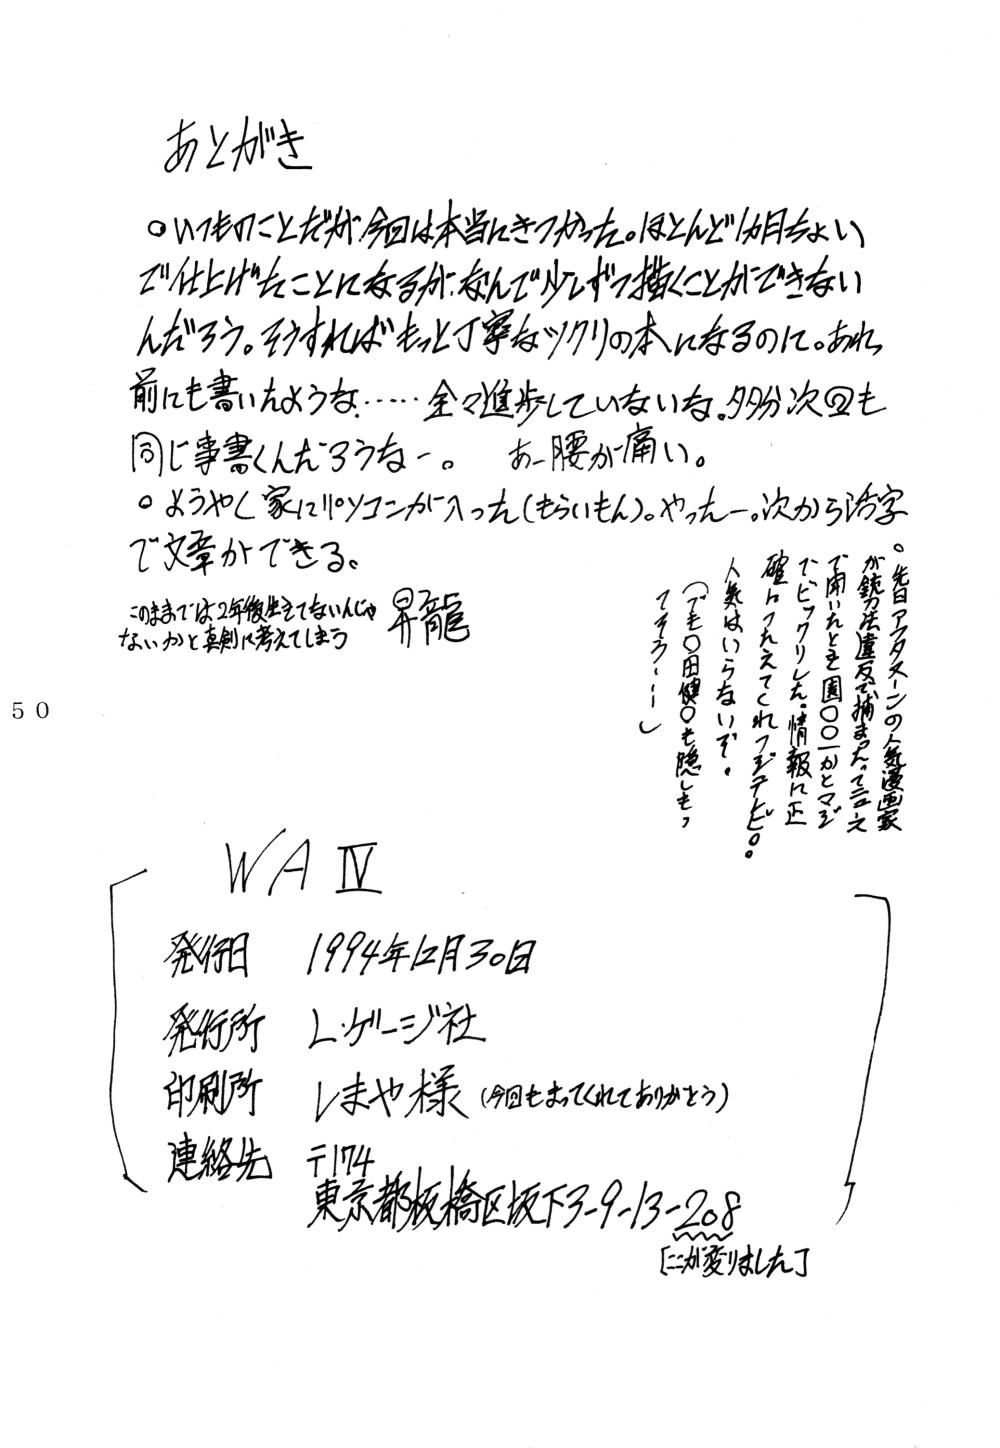 あとがき
○いつものことだが今回は本当にきつかった。ほとんど1カ月ちょい
で仕上げたことになるが、なんで少しずつ描くことができない
んだろう。そうすればもっと丁寧なツクリの本になるのに。あれっ
前にも書いたような……全々進歩していないな。多分次回も
同じ事書くんだろうなー。 あー腰が痛い。
○ようやく家にパソコンが入った(もらいもん)。やったー。次から活字
で文章ができる。
このままでは2年後生きてないんじゃ
ないかと真剣に考えてしまう
昇龍
○先日アフタヌーンの人気漫画家
が銃刀法違反で捕まったってニュース
で聞いたとき園○○一かとマジ
でビックリした。情報は正
確につたえてくれフジテレビ。
人気はいらないぞ。
(でも○田健○も隠しもっ
てそう---)
50
WA Ⅳ
発行日 1994年12月30日
発行所 L・ゲージ社
印刷所 しまや様(今回もまってくれてありがとう)
連絡先 〒174
東京都板橋区坂下3-9-13-208
[ここが変りました]